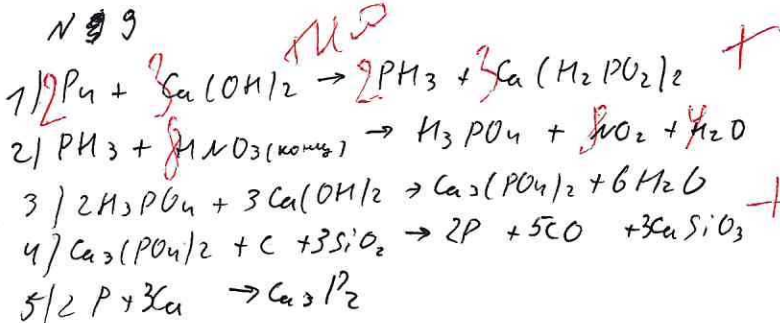 N 9
+H2O
1) 2P4 + 3Ca(OH)2 → 2PH3 + 3Ca(H2PO2)2 +
2) PH3 + 8HNO3(конц) → H3PO4 + 8NO2 + 4H2O
3) 2H3PO4 + 3Ca(OH)2 → Ca3(PO4)2 + 6H2O
4) Ca3(PO4)2 + C + 3SiO2 → 2P + 5CO + 3CaSiO3 +
5) 2P + 3Ca → Ca3P2